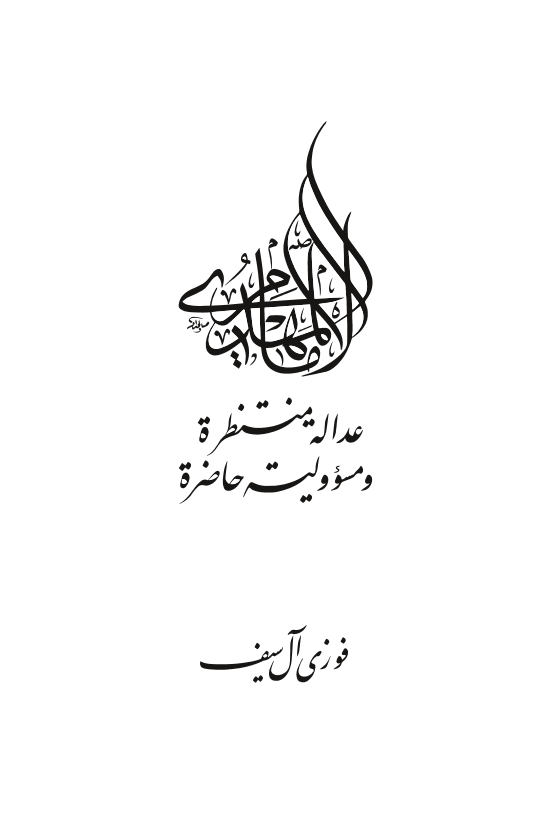 الإمام المهدي
عدالة منتظرة
ومسؤولية حاضرة
فوزي آل سيف